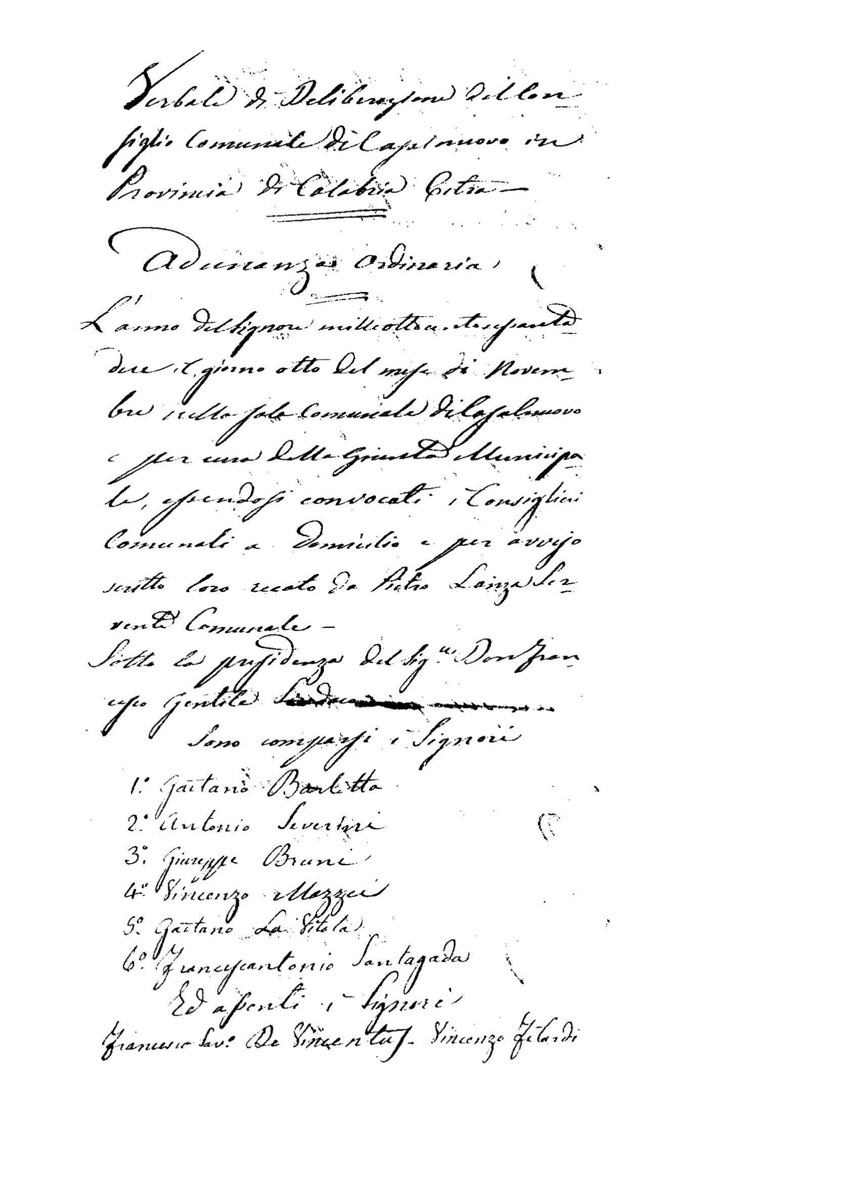 Verbale di Deliberazione del Con=
siglio Comunale di Casalnuovo in
Provincia di Calabria Citra —
Adunanza Ordinaria
L'anno del Signore milleottocentosessanta
due il giorno otto del mese di Novem=
bre nella sala Comunale di Casalnuovo
e per cura della Giunta Municipa
le, essendosi convocati i Consiglieri
Comunali a domicilio e per avviso
scritto loro recato da Pietro Lanza Ser=
vente Comunale —
Sotto la presidenza del Sig.re Don Fran=
cesco Gentile Sindaco
Sono comparsi i Signori
1.° Gaetano Barletta
2.° Antonio Severini
3.° Giuseppe Bruni
4.° Vincenzo Mazzei
5.° Gaetano La Vitola
6.° Francescantonio Santagada
Ed assenti i Signori
Francesco Sav.° De Vincentis - Vincenzo Filardi